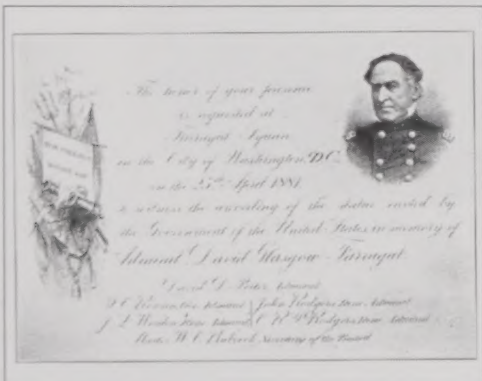 The honor of your presence
is requested at
Farragut Square
in the City of Washington, D.C.
on the 25th April 1881
to witness the unveiling of the statue erected by
the Government of the United States in memory of
Admiral David Glasgow Farragut.
David D. Porter, Admiral
Admiral John Rodgers, Rear-Admiral
Rear-Admiral C. R. P. Rodgers, Rear-Admiral
Secretary of the Board